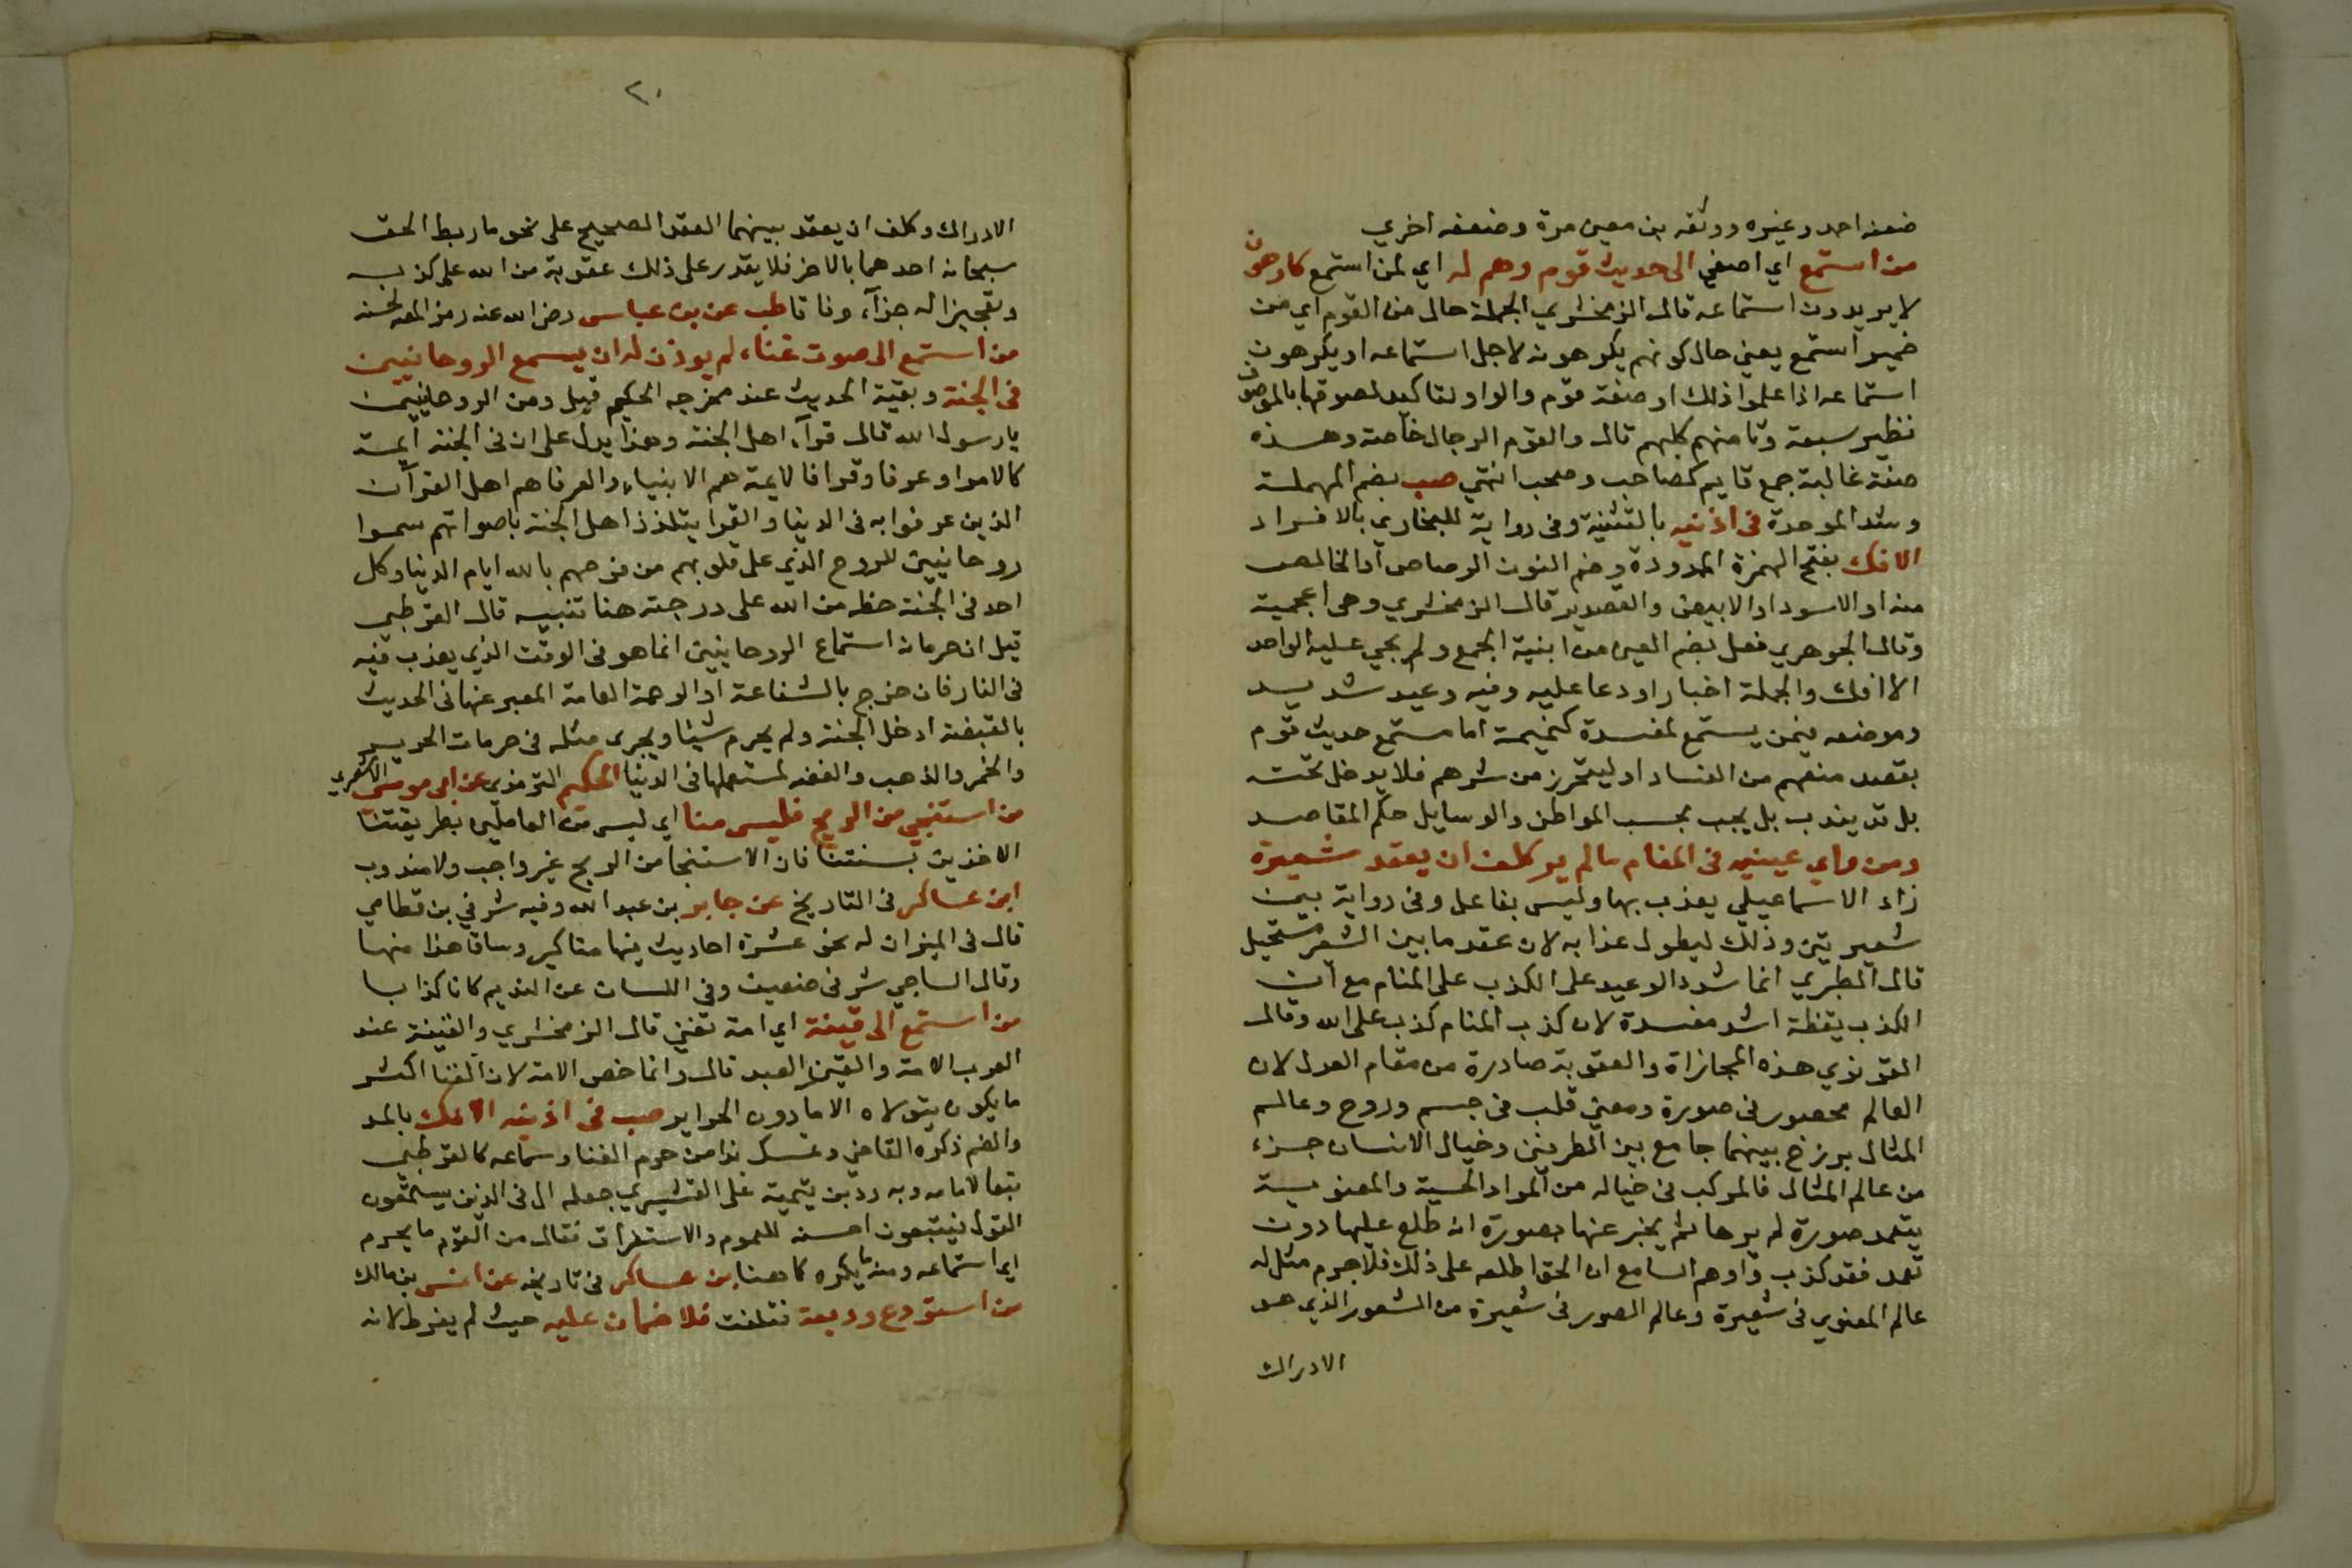 ضعفه احمد وغيره ووثقه بن معين مرة وضعفه اخري
من استمع اي اصغي الى حديث قوم وهم له اي لمن استمع كارهون
لا يريدون استماعه قال الزمخشري الجملة حال من القوم اي من
ضمير استمع يعني حال كونهم يكرهونه لاجل استماعه او يكرهون
استماعه اذا علموا ذلك او صفة قوم والواو لتاكيد لصوقها بالموصوف
نظير سبعة وثامنهم كلبهم قال والقوم الرجال خاصة وهذه
صفة غالبة جمع قايم كصاحب وصحب انتهي صب بضم المهملة
وشد الموحدة في اذنيه بالتثنية وفي رواية للبخاري بالافراد
الانك بفتح الهمزة الممدودة وضم النون الرصاص او الخالص
منه او الاسود او الابيض والقصدير قال الزمخشري وهي اعجمية
وقال الجوهري فعل بضم العين من ابنية الجمع ولم يجي عليه الواحد
الا انك والجملة اخبار او دعا عليه وفيه وعيد شديد
وموضعه فيمن يستمع لمفسدة كنميمة اما مستمع حديث قوم
بقصد منعهم من الفساد او ليتحرز من شرهم فلا يدخل تحته
بل قد يندب بل يجب بحسب المواطن والوسايل حكم المقاصد
ومن راي عينيه في المنام ما لم ير كلف ان يعقد شعيرة
زاد الاسماعيلي يعذب بها وليس بفاعل وفي رواية بين
شعيرتين وذلك ليطول عذابه لان عقد ما بين الشعير مستحيل
قال الطبري انما شدد الوعيد على الكذب على المنام مع ان
الكذب يقظة اشد مفسدة لان كذب المنام كذب على الله وقال
القونوي هذه المجازاة والعقوبة صادرة من مقام العدل لان
العالم محصور في صورة ومعني قلب في جسم وروح وعالم
المثال برزخ بينهما جامع بين الطرفين وخيال الانسان جزء
من عالم المثال فالمركب في خياله من المواد الحسية والمعنوية
يتعمد صورة لم يرها ثم يخبر عنها بصورة انه طلع عليها دون
تعمد فقد كذب واوهم السامع ان الحق اطلعه على ذلك فلا جرم مثل له
عالم المعنوي في شعيرة وعالم الصور في شعيرة من الشعور الذي هو
الادراك
٢٠
الادراك وكلف ان يعقد بينهما العقد الصحيح على نحو ما ربط الحق
سبحانه احدهما بالاخر فلا يقدر على ذلك عقوبة من الله على كذبه
وتعجيزا له جزآء وفاقا طب عن بن عباس رضي الله عنه رمز المص لحسنه
من استمع الى صوت غناء لم يوذن له ان يسمع الروحانيين
في الجنة وبقية الحديث عند مخرجه الحكيم قيل ومن الروحانيين
يا رسول الله قال قرآء اهل الجنة وهذا يدل على ان في الجنة ايمة
كالامرا وعرفا وقرا فالايمة هم الانبياء والعرفا هم اهل القرآن
الذين عرفوا به في الدنيا والقرا يتلذذ اهل الجنة باصواتهم سموا
روحانيين للروح الذي على قلوبهم من فرحهم بالله ايام الدنيا وكل
احد في الجنة حظه من الله على درجته هنا تنبيه قال القرطبي
قيل ان حرمان استماع الروحانيين انما هو في الوقت الذي يعذب فيه
في النار فان خرج بالشفاعة او الرحمة العامة المعبر عنها في الحديث
بالقبضة ادخل الجنة ولم يحرم شيئا ويجري مثله في حرمات الحرير
والخمر والذهب والفضه لمستعملها في الدنيا الحكيم الترمذي عن ابي موسى الاشعري
من استنجي من الريح فليس منا اي ليس من العاملين بطريقتنا
الاخذين بسنتنا فان الاستنجا من الريح غير واجب ولا مندوب
ابن عساكر في التاريخ عن جابر بن عبد الله وفيه شرفي بن قطامي
قال في الميزان له نحو عشرة احاديث فيها مناكير وساق هذا منها
وقال الساجي شرفي ضعيف وفي اللسان عن النديم كان كذابا
من استمع الى قينة اي امة تغني قال الزمخشري والقينة عند
العرب الامة والقين العبد قال وانما خص الامة لان الغنا اكثر
ما يكون يتولاه الاما دون الحراير صب في اذنيه الانك بالمد
والضم ذكره القاضي وتمسك بذا من حرم الغنا وسماعه كالقرطبي
تبعا لامامه وبه رد بن تيمية على القشيري جعله ال في الذين يستمعون
القول فيتبعون احسنه للعموم والاستغراق فقال من القوم ما يحرم
اي استماعه ومنه ما يكره كما هنا بن عساكر في تاريخه عن انس بن مالك
من استودع وديعة فتلفت فلا ضمان عليه حيث لم يفرط لانه